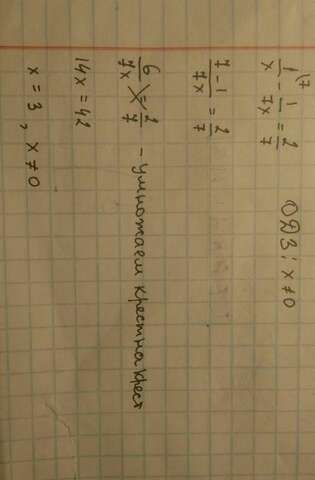 1/x⁷⁾ - 1/7x = 2/7 ОДЗ: x ≠ 0
7-1/7x = 2/7
6/7x = 2/7 - умножаем крест на крест
14x = 42
x = 3, x ≠ 0